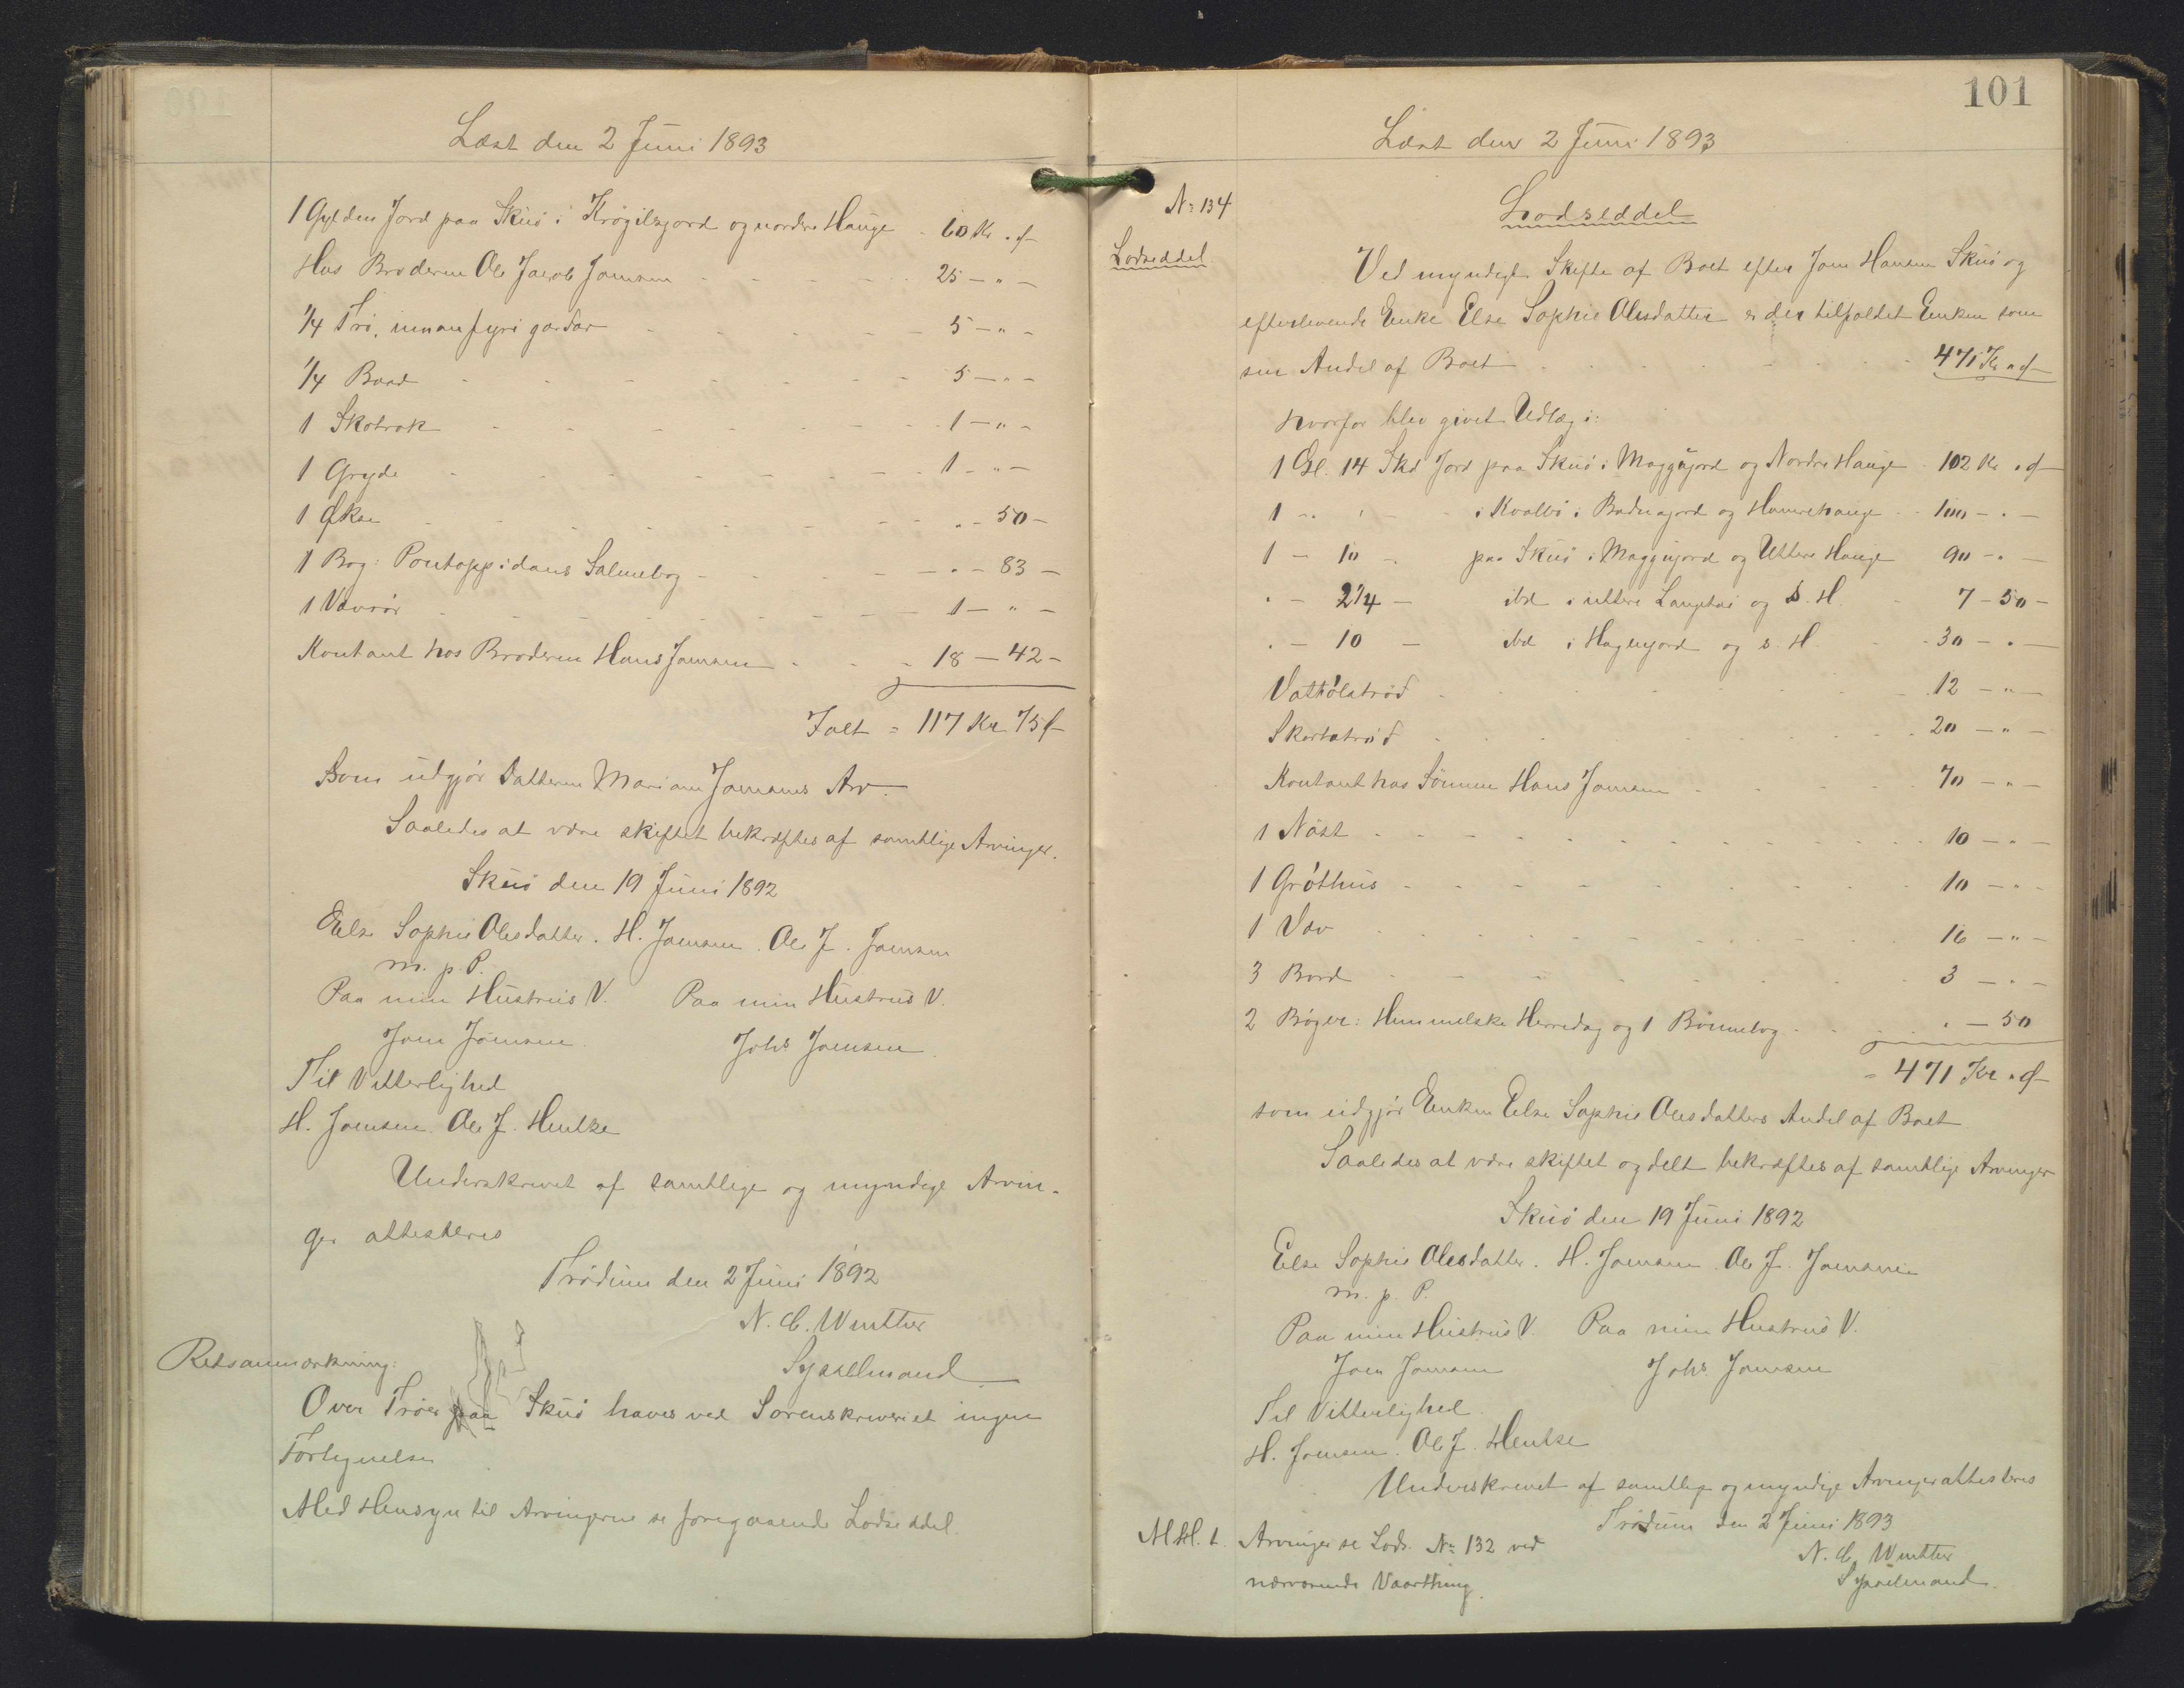 Læst den 2 Juni 1893
1 Gylden Jord paa Skuö i Krøgilsgjord og nordre Hauge - 60 Kr. " ø
Hos Broderen Ole Jacob Joensen - - - - 25 - " -
1/4 Trö, innanfyri gardar - - - - - 5 - " -
1/4 Baad - - - - - - 5 - " -
1 Skotrok - - - - - - 1 - " -
1 Gryde - - - - - - 1 - " -
1 Økse - - - - - - " - 50 -
1 Bog: Pontoppidans Salmebog - - - - " - 83 -
1 Vævrör - - - - - - 1 - " -
Kontant hos Broderen Hans Joensen - - - 18 - 42 -
Ialt = 117 Kr 75 ø
Som udgjör Datteren Mariann Joensens Arv.
Saaledes at være skiftet bekræftes af samtlige Arvinger.
Skuö den 19 Juni 1892
Else Sophie Olesdatter. H. Joensen. Ole J. Joensen
m. p. P.
Paa min Hustrus V. Paa min Hustrus V.
Joen Joensen. Johs Joensen.
Til Vitterlighed
H. Joensen. Ole J. Hentze
Underskrevet af samtlige og myndige Arvin-
ger attesteres
Trödum den 2 Juni 1892
N. C. Winther
Sysselmand
Retsanmærkning:
Over Tröer paa Skuö haves ved Sorenskriveriet ingen
Fortegnelse
Med Hensyn til Arvingerne se foregaaende Lodseddel.
101
Læst den 2 Juni 1893
No 134
Lodseddel
Lodseddel
Ved myndigt Skifte af Boet efter Joen Hansen Skuö og
efterlevende Enke Else Sophie Olesdatter er der tilfaldet Enken som
sin Andel af Boet - - - - - 471 Kr " ø
hvorfor blev givet Udlæg i:
1 Gl. 14 Skd Jord paa Skuö i Maggujord og Nordre Hauge - 102 Kr. " ø
1 - " - - i Kvalbö i Badnagjord og Hamrehauge - - 100 - " -
1 - 10 - paa Skuö i Maggujord og Uttere Hauge 90 - " -
" - 2 1/4 - ibd i uttere Langetai og s. H. - 7 - 50 -
" - 10 - ibd i Hagengjord og s. H. - - 30 - " -
Vathölatröð - - - - - - 12 - " -
Skortatröð - - - - - - 20 - " -
Kontant hos Sönnen Hans Joensen - - - - 70 - " -
1 Nöst - - - - - - 10 - " -
1 Gróthus - - - - - - 10 - " -
1 Væv - - - - - - 16 - " -
3 Bord - - - - - - 3 - " -
2 Bøger: Himmelske Herredag og 1 Bönnebog - - - " - 50
= 471 Kr. " ø
som udgjör Enken Else Sophie Olesdatters Andel af Boet
Saaledes at være skiftet og delt bekræftes af samtlige Arvinger
Skuö den 19 Juni 1892
Else Sophie Olesdatter. H. Joensen. Ole J. Joensen
m. p. P.
Paa min Hustrus V. Paa min Hustrus V.
Joen Joensen Johs Joensen
Til Vitterlighed
H. Joensen. Ole J. Hentze
Underskrevet af samtlige og myndige Arvinger attesteres
Trödum den 2 Juni 1893
N. C. Winther
Sysselmand.
M. H. t. Arvinger se Lods. No 132 ved
nærværende Vaarthing.